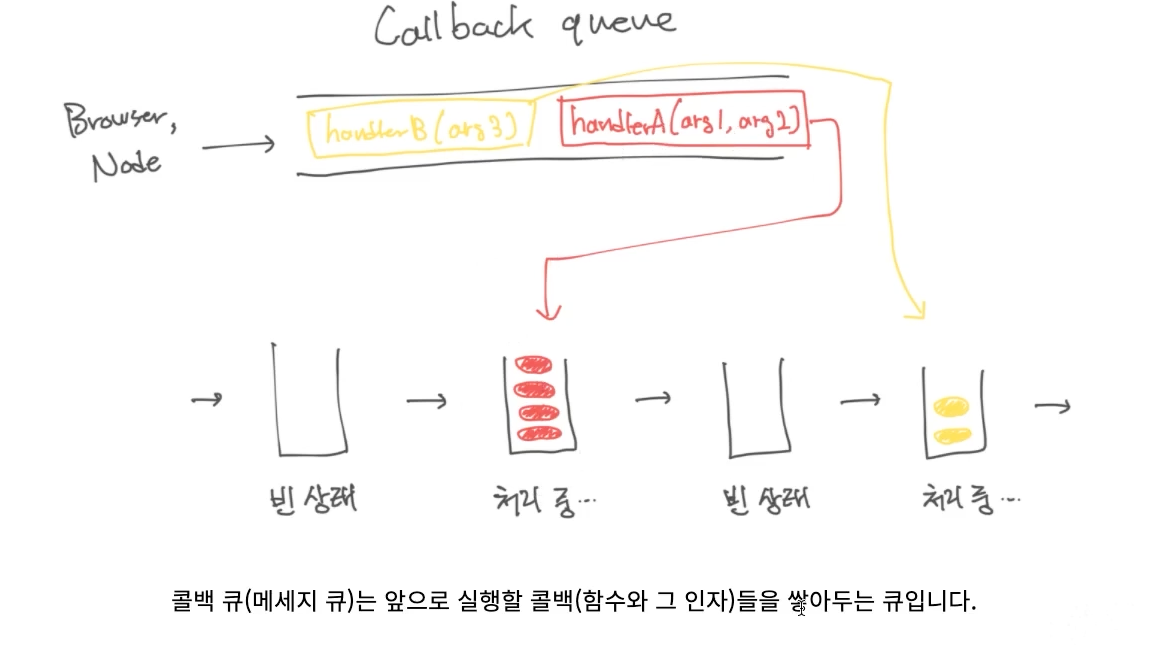 Callback queue
Browser,
Node
handlerB(arg3)
handlerA(arg1, arg2)
빈 상태
처리 중...
빈 상태
처리 중...
콜백 큐(메세지 큐)는 앞으로 실행할 콜백(함수와 그 인자)들을 쌓아두는 큐입니다.